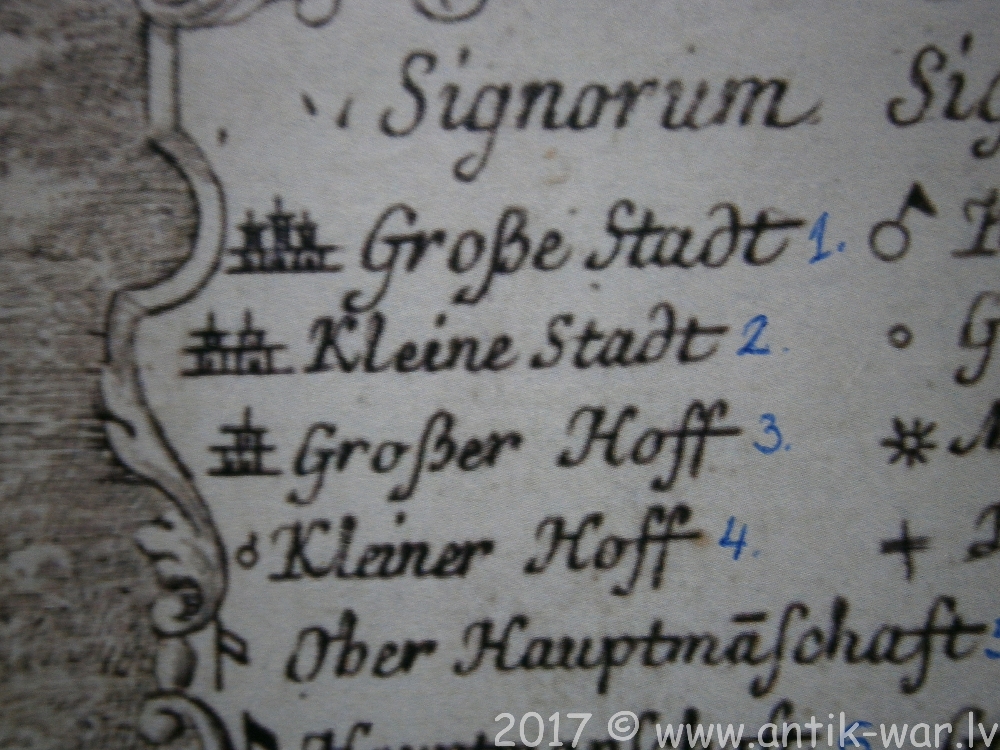 Signorum Sig
Große Stadt 1.
Kleine Stadt 2. G
Großer Hoff 3.
Kleiner Hoff 4.
Ober Hauptmāſchaft 5
2017 © www.antik-war.lv